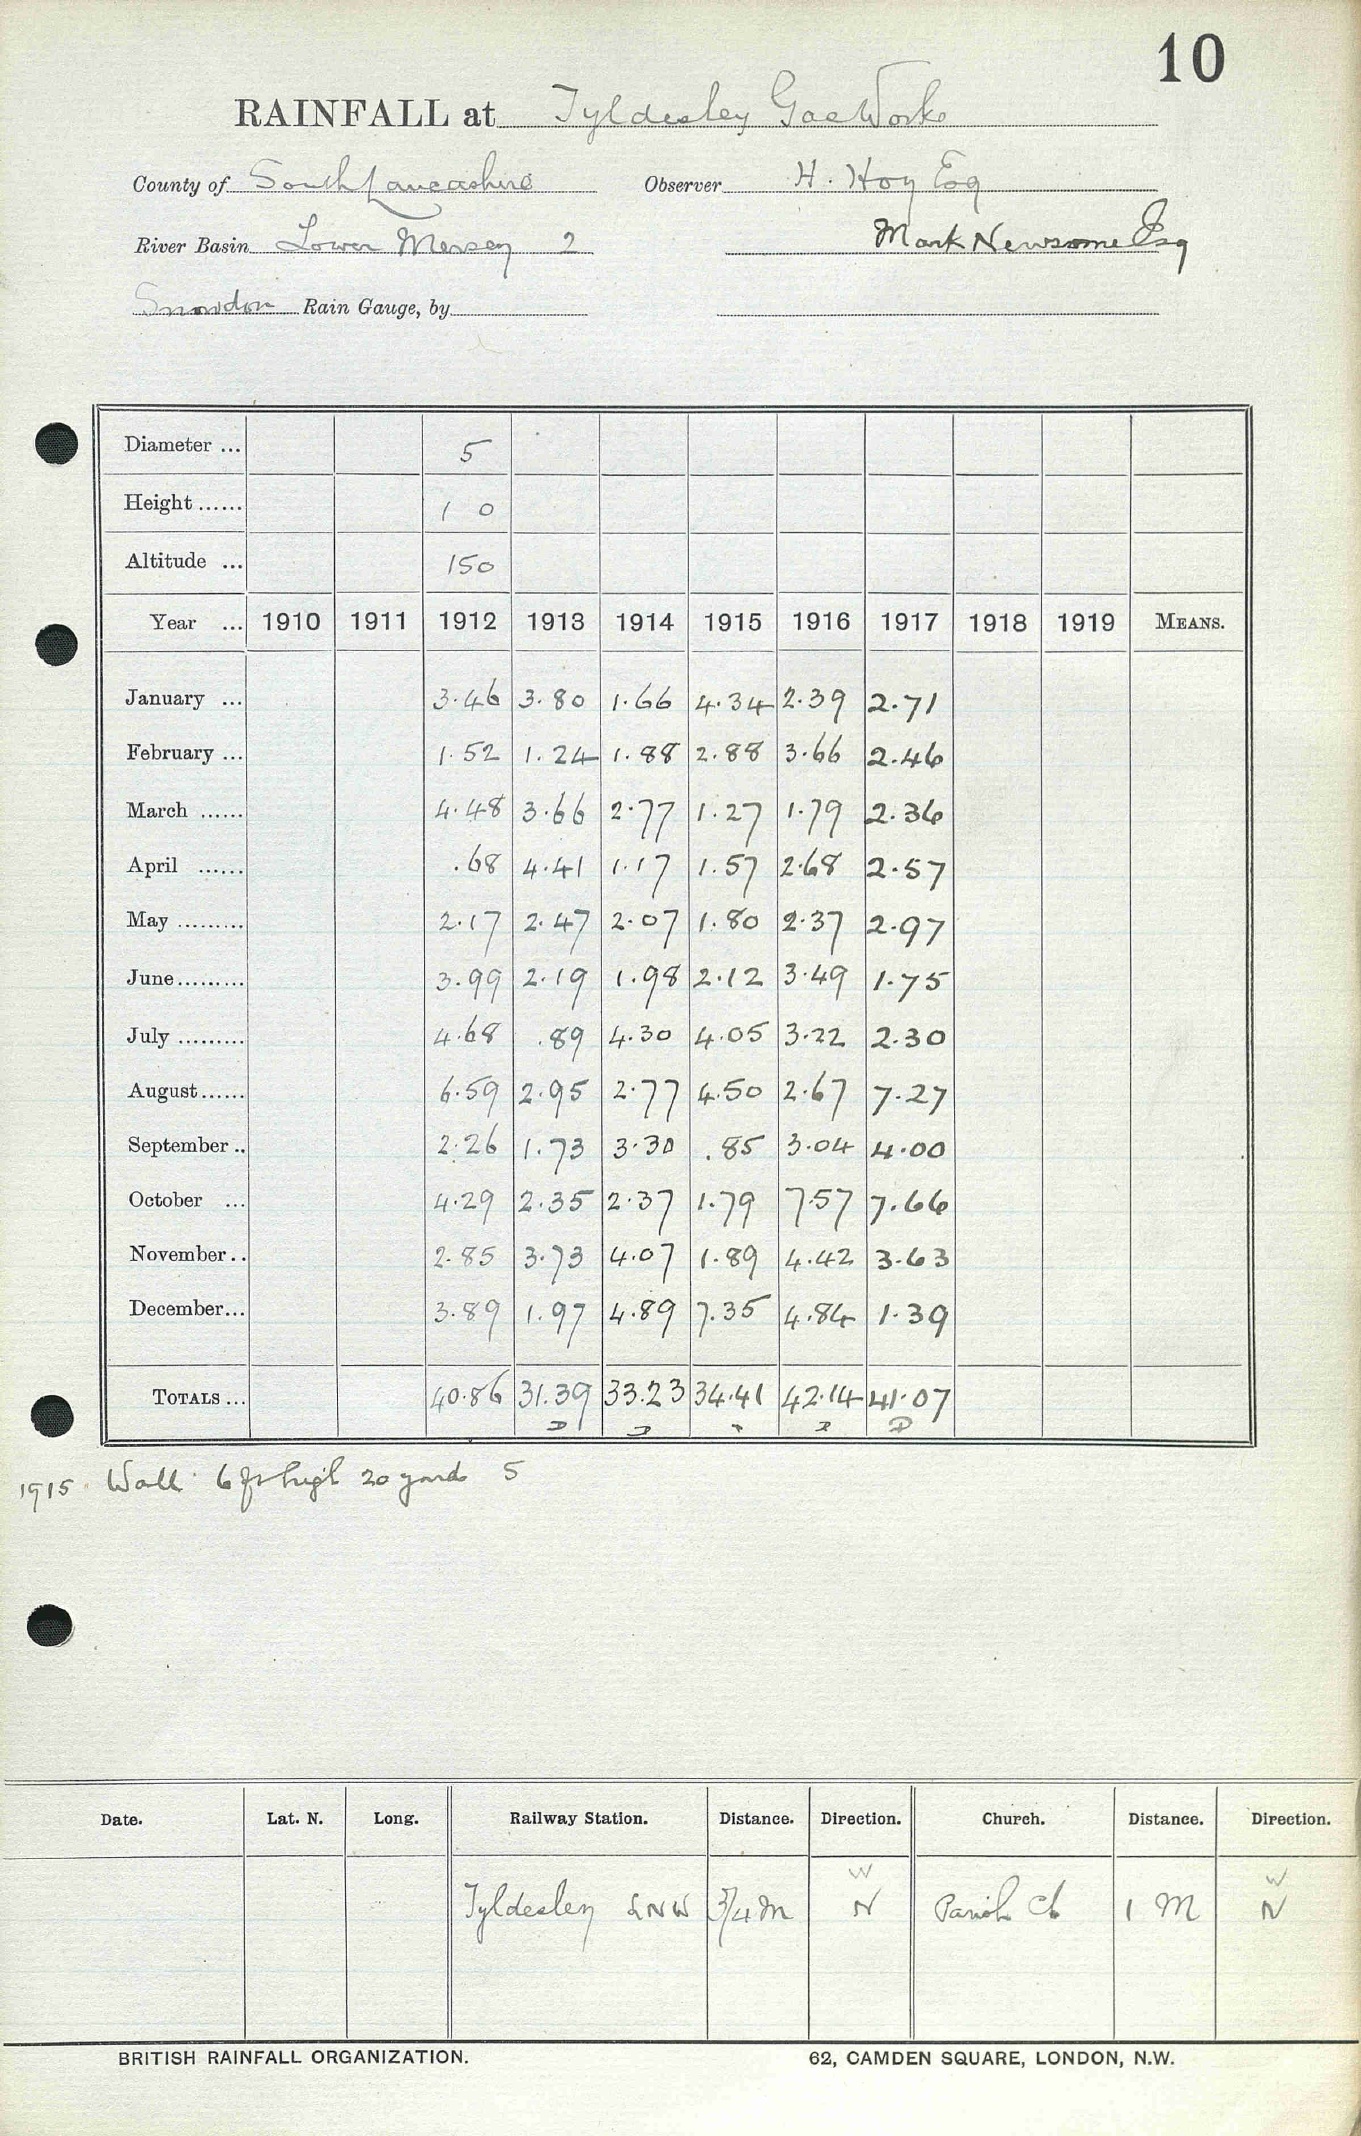 10
RAINFALL at Tyldesley Gas Works
County of South Lancashire Observer H. Hoy Esq
River Basin Lower Mersey 2 Mark Newsome Esq
Snowdon Rain Gauge, by
Diameter ... 5
Height ...... 1 0
Altitude ... 150
Year ... 1910 1911 1912 1913 1914 1915 1916 1917 1918 1919 MEANS.
January ... 3.46 3.80 1.66 4.34 2.39 2.71
February ... 1.52 1.24 1.88 2.88 3.66 2.46
March ...... 4.48 3.66 2.77 1.27 1.79 2.36
April ...... .68 4.41 1.17 1.57 2.68 2.57
May ......... 2.17 2.47 2.07 1.80 2.37 2.97
June......... 3.99 2.19 1.98 2.12 3.49 1.75
July ......... 4.68 .89 4.30 4.05 3.22 2.30
August...... 6.59 2.95 2.77 4.50 2.67 7.27
September .. 2.26 1.73 3.30 .85 3.04 4.00
October ... 4.29 2.35 2.37 1.79 7.57 7.66
November.. 2.85 3.73 4.07 1.89 4.42 3.63
December... 3.89 1.97 4.89 7.35 4.84 1.39
TOTALS ... 40.86 31.39 33.23 34.41 42.14 41.07
D
1915. Wall 6 ft high 20 yards S
Date. Lat. N. Long. Railway Station. Distance. Direction. Church. Distance. Direction.
W W
Tyldesley LNW 3/4 M N Parish Ch 1 M N
BRITISH RAINFALL ORGANIZATION. 62, CAMDEN SQUARE, LONDON, N.W.